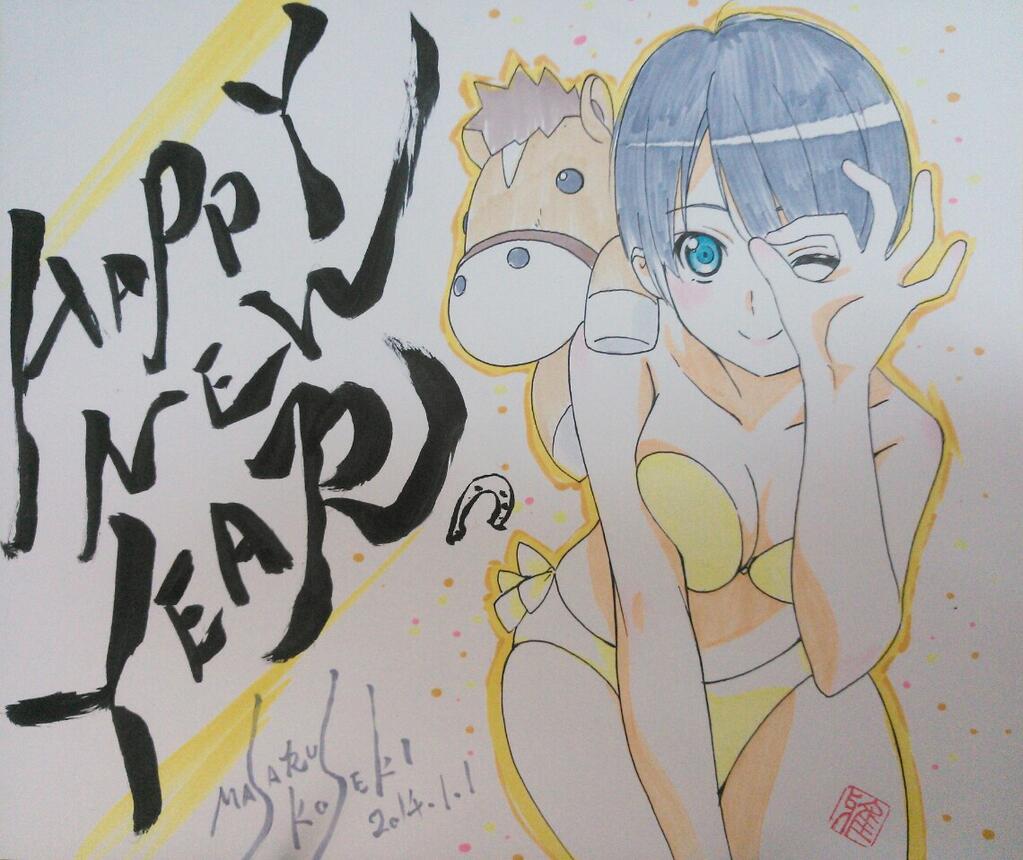 HAPPY
NEW
YEAR
MASARU
KOSEKI
2014.1.1